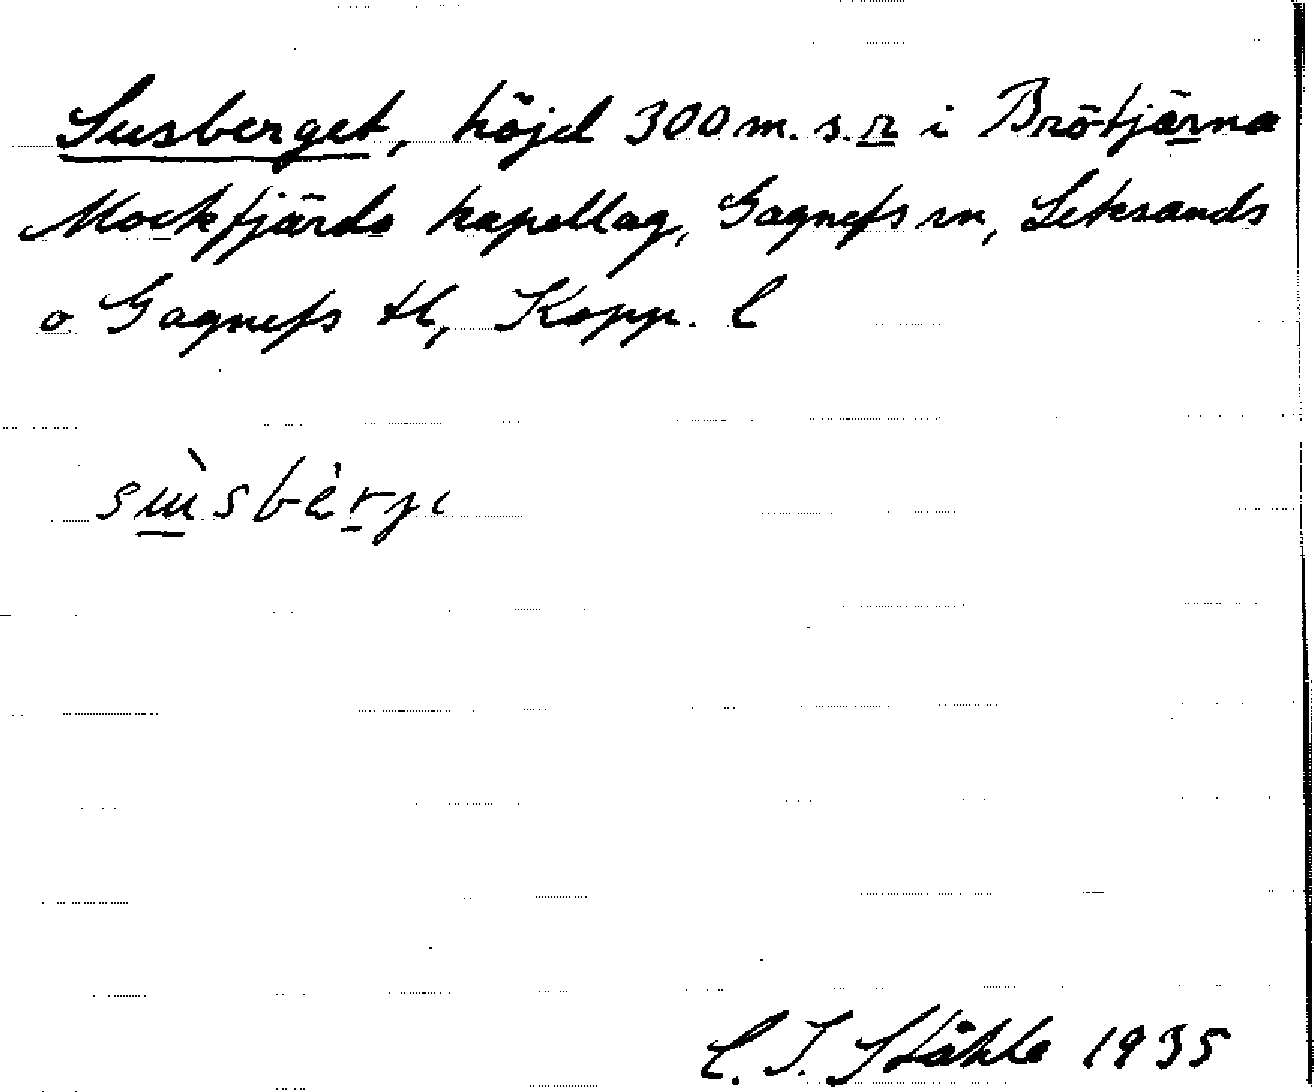 Susberget, höjd 300 m. s. r i Brötjärna
Mockfjärds kapellag, Gagnefs sn, Leksands
o Gagnefs tl, Kopp. l
C. I. Ståhle 1935